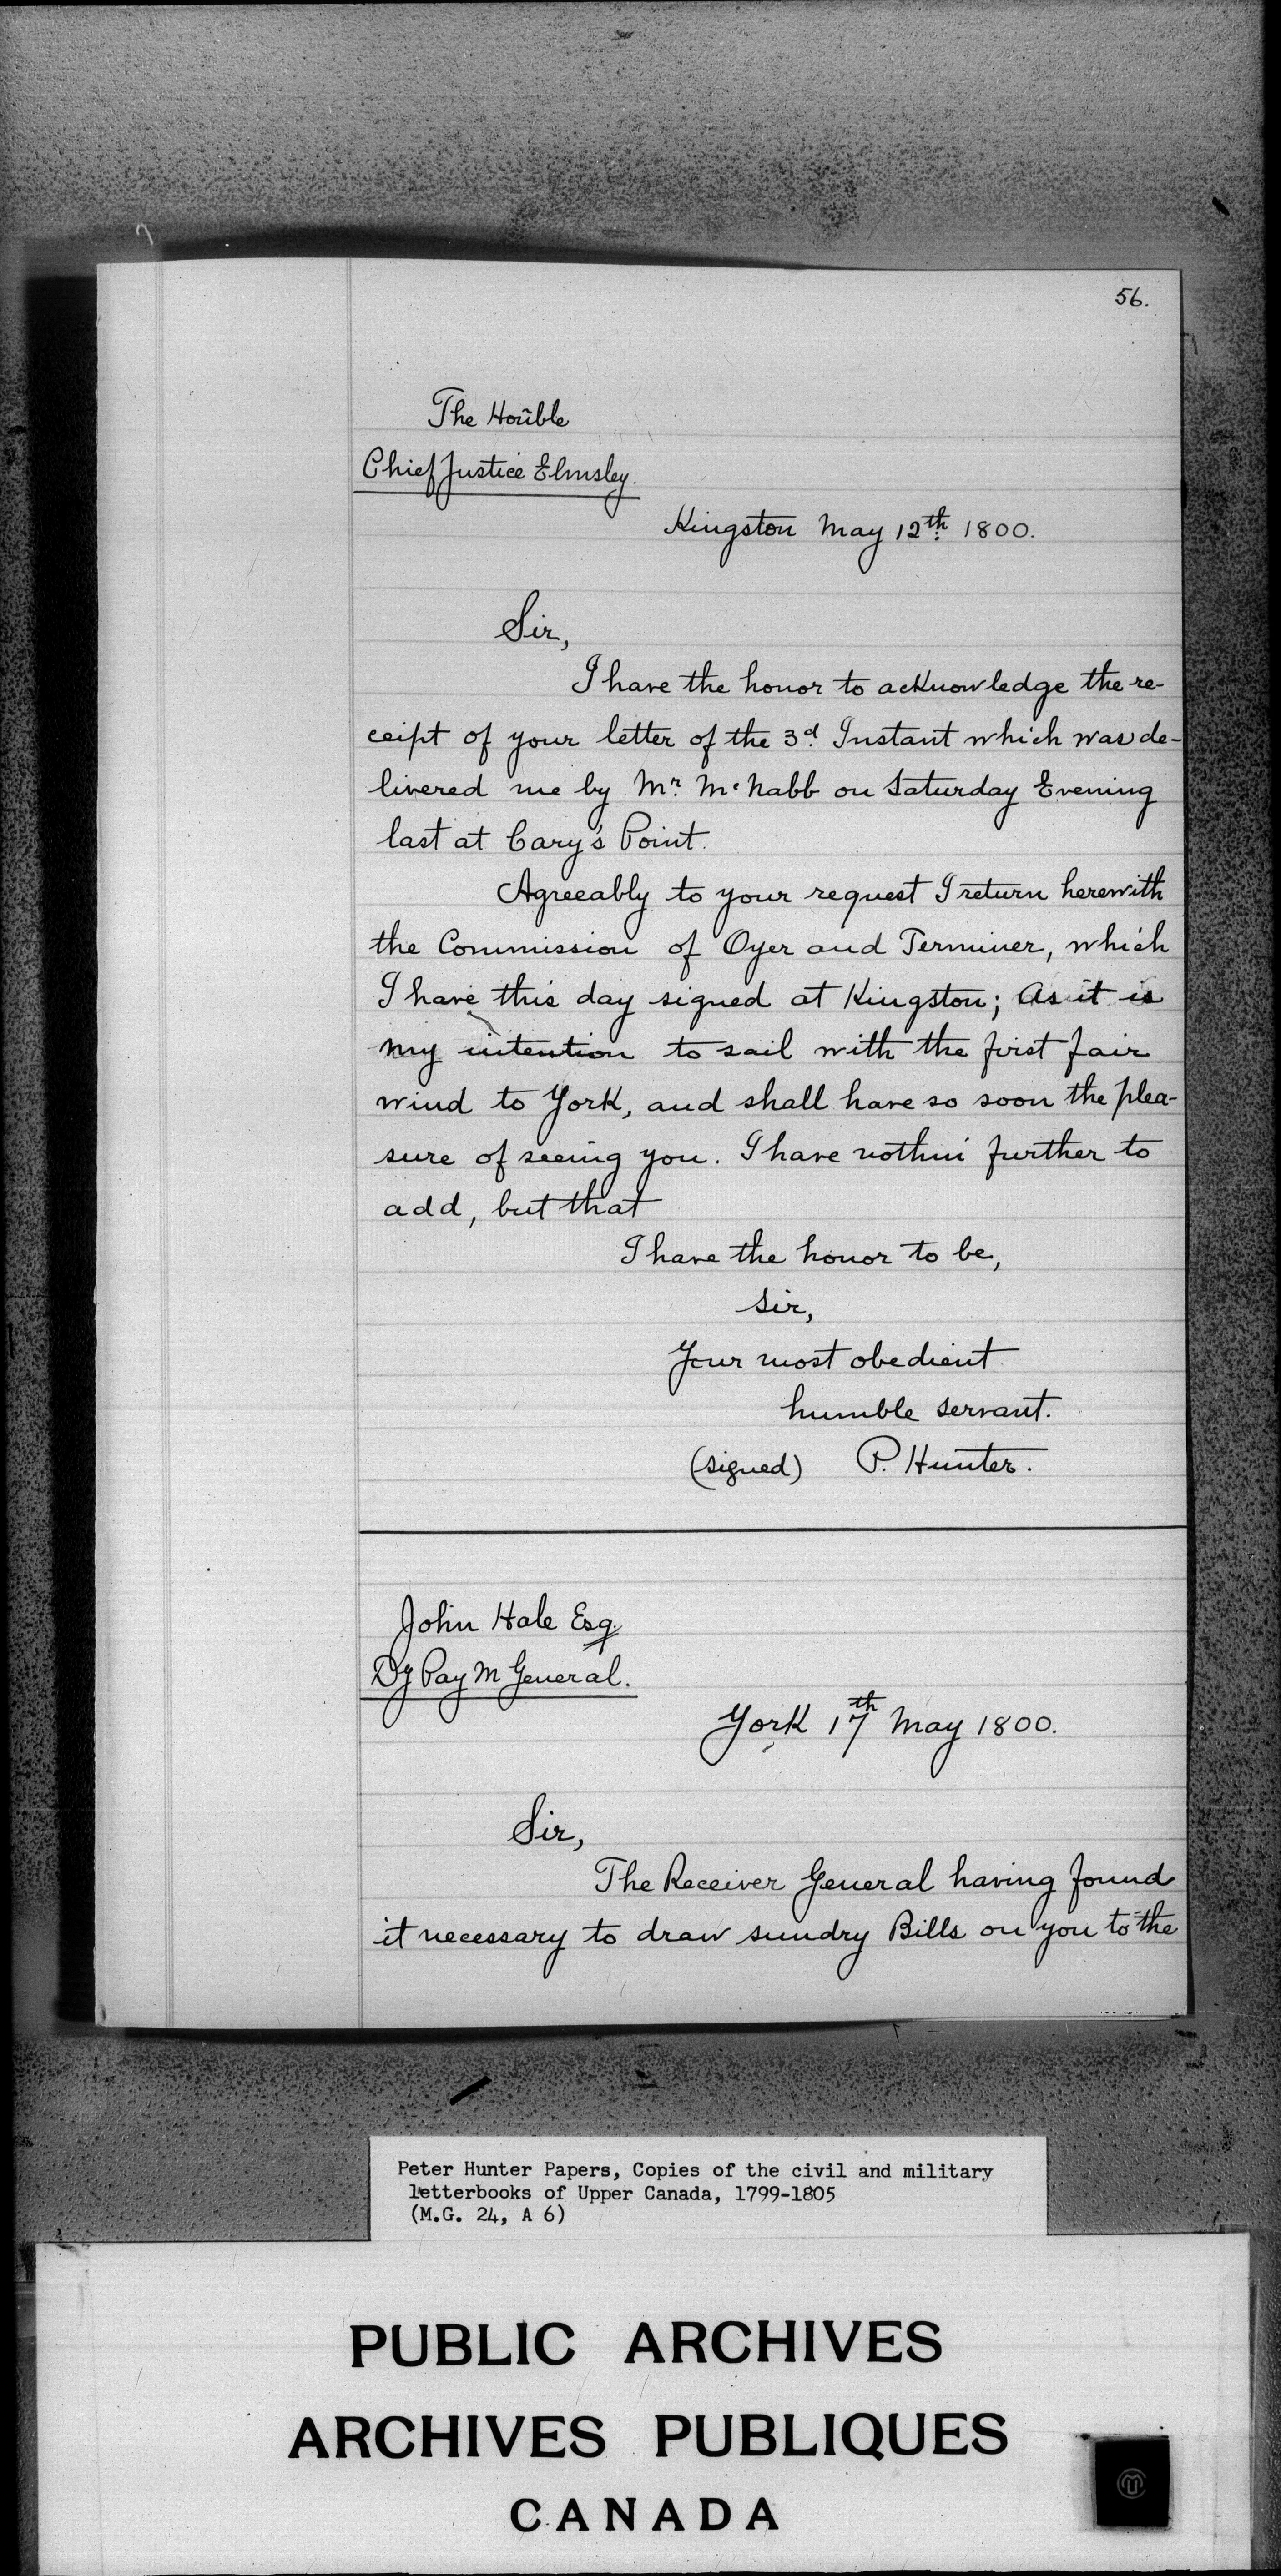 56.
The Hoñble
Chief Justice Elmsley.
Kingston May 12th 1800.
Sir,
I have the honor to acknowledge the re-
ceipt of your letter of the 3d Instant which was de-
livered me by Mr. McNabb on Saturday Evening
last at Cary's Point.
Agreeably to your request I return herewith
the Commission of Oyer and Terminer, which
I have this day signed at Kingston; As it is
my intention to sail with the first fair
wind to York, and shall have so soon the plea-
sure of seeing you. I have nothin' further to
add, but that
I have the honor to be,
Sir,
Your most obedient
humble servant.
(signed) P. Hunter.
John Hale Esq.
Dy Pay M General.
York 17th May 1800.
Sir,
The Receiver General having found
it necessary to draw sundry Bills on you to the
Peter Hunter Papers, Copies of the civil and military
letterbooks of Upper Canada, 1799-1805
(M.G. 24, A 6)
PUBLIC ARCHIVES
ARCHIVES PUBLIQUES
CANADA